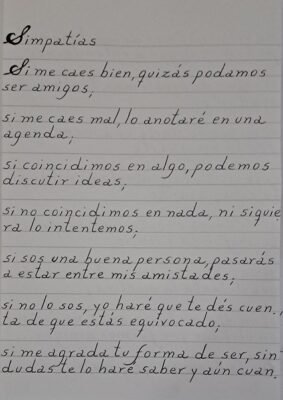 Simpatías
Si me caes bien, quizás podamos
ser amigos;
si me caes mal, lo anotaré en una
agenda;
si coincidimos en algo, podemos
discutir ideas;
si no coincidimos en nada, ni siquie
ra lo intentemos;
si sos una buena persona, pasarás
a estar entre mis amistades;
si no lo sos, yo haré que te dés cuen.,
ta de que estás equivocado;
si me agrada tu forma de ser, sin
dudas te lo haré saber y aún cuan.